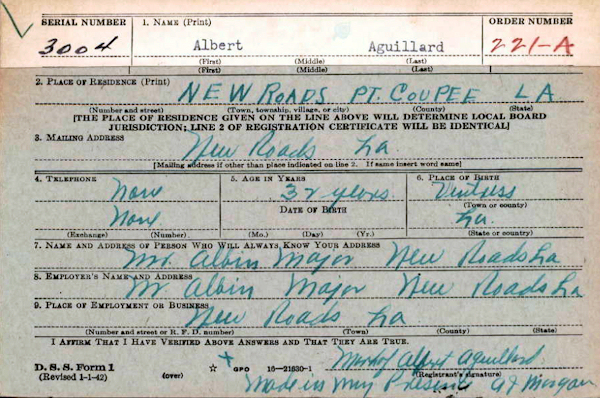 SERIAL NUMBER 1. NAME (Print) ORDER NUMBER
3004 Albert Aguillard 221-A
(First) (Middle) (Last)
(First) (Middle) (Last)
2. PLACE OF RESIDENCE (Print)
NEW ROADS PT. COUPEE LA
(Number and street) (Town, township, village, or city) (County) (State)
[THE PLACE OF RESIDENCE GIVEN ON THE LINE ABOVE WILL DETERMINE LOCAL BOARD
JURISDICTION; LINE 2 OF REGISTRATION CERTIFICATE WILL BE IDENTICAL]
3. MAILING ADDRESS
New Roads La.
[Mailing address if other than place indicated on line 2. If same insert word same]
4. TELEPHONE 5. AGE IN YEARS 6. PLACE OF BIRTH
None 32 years Ventress
DATE OF BIRTH (Town or county)
None La.
(Exchange) (Number) (Mo.) (Day) (Yr.) (State or country)
7. NAME AND ADDRESS OF PERSON WHO WILL ALWAYS KNOW YOUR ADDRESS
Mr. Albin Major New Roads La
8. EMPLOYER'S NAME AND ADDRESS
Mr Albin Major New Roads La
9. PLACE OF EMPLOYMENT OR BUSINESS
New Roads La
(Number and street or R. F. D. number) (Town) (County) (State)
I AFFIRM THAT I HAVE VERIFIED ABOVE ANSWERS AND THAT THEY ARE TRUE.
Mark of Albert Aguillard
D. S. S. Form 1 GPO 16—21630-1 (Registrant's signature)
(Revised 1-1-42) (over) Made in my Presence A J Morgan